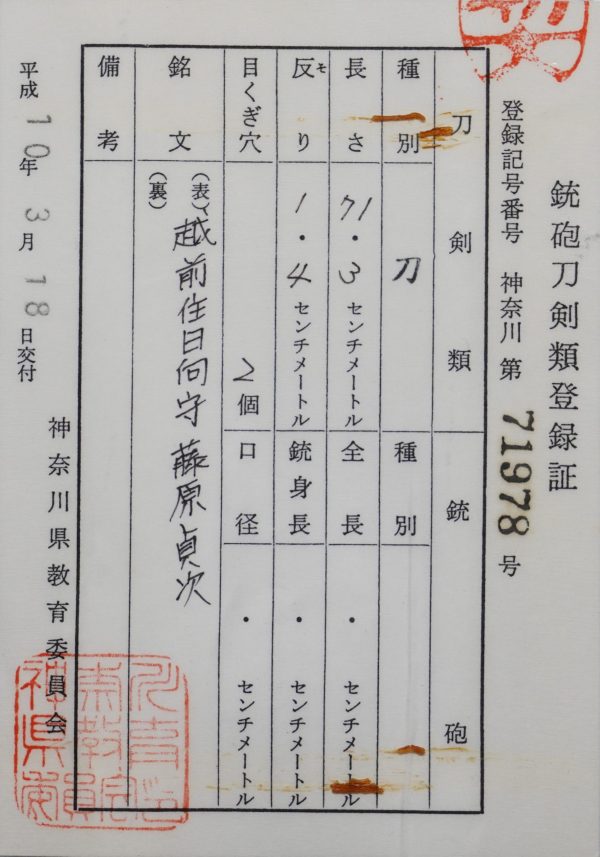 銃砲刀剣類登録証
登録記号番号 神奈川 第 71978 号
刀剣類 銃砲
種別 刀 種別
長さ 71・3 センチメートル 全長 ・ センチメートル
反り モ 1・4 センチメートル 銃身長 ・ センチメートル
目くぎ穴 2個 口径 ・ センチメートル
銘文 (表) 越前住日向守藤原貞次
(裏)
備考
平成10年3月18日交付
神奈川県教育委員会